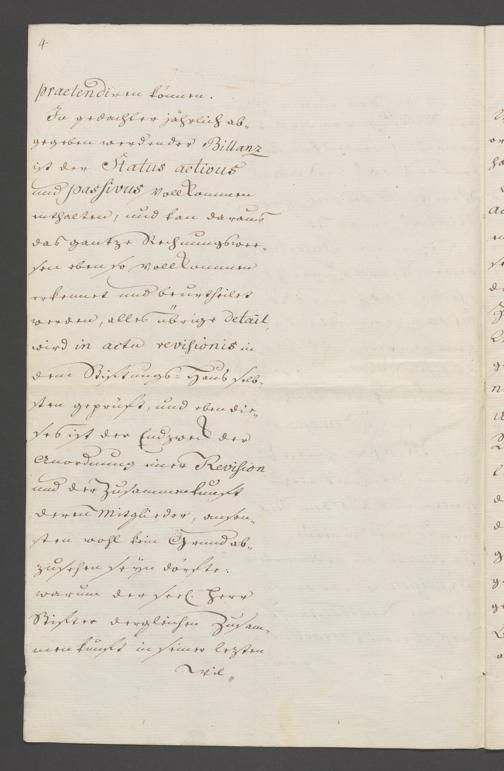 4
praetendiren können.
In gedachter jährlich ab-
gegeben werdender Billanz
ist der Status activus
und passivus vollkommen
enthalten, und kan daraus
das gantze Rechnungswe-
sen eben so vollkommen
erkennet und beurtheilet
werden, alles übrige detail
wird in actu revisionis in
dem Stifftungs-Haus selb-
sten geprüft, und eben die-
ses ist der Endzweck der
Anordnung einer Revision
und der Zusammenkunft
deren Mitglieder, anson-
sten wohl kein Grund ab-
zusehen seyn dörfte:
warum der seel. Herr
Stifter dergleichen Zusam-
menkunft in seiner letzten
Wil-